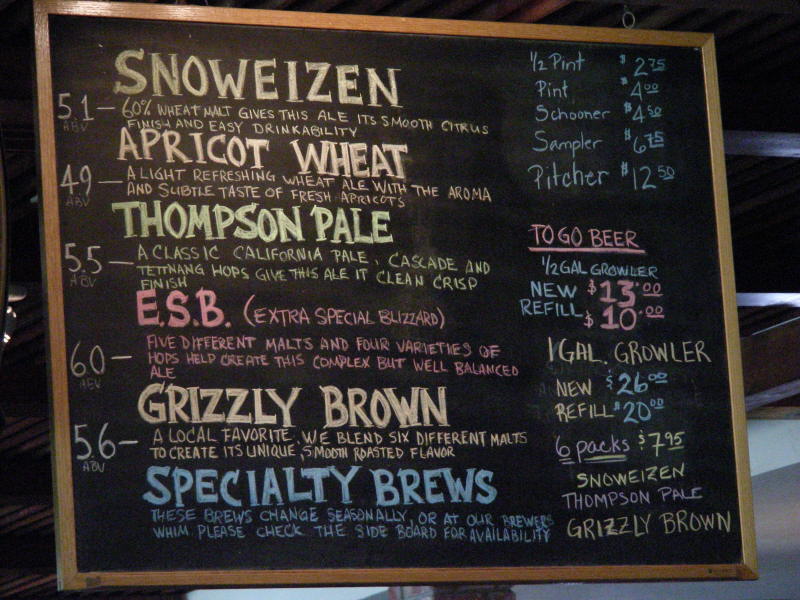 SNOWEIZEN
5.1 – 60% WHEAT MALT GIVES THIS ALE ITS SMOOTH CITRUS
ABV FINISH AND EASY DRINKABILITY
APRICOT WHEAT
4.9 – A LIGHT REFRESHING WHEAT ALE WITH THE AROMA
ABV AND SUBTLE TASTE OF FRESH APRICOTS
THOMPSON PALE
5.5 – A CLASSIC CALIFORNIA PALE, CASCADE AND
ABV TETTNANG HOPS GIVE THIS ALE IT CLEAN CRISP
FINISH
E.S.B. (EXTRA SPECIAL BLIZZARD)
6.0 – FIVE DIFFERENT MALTS AND FOUR VARIETIES OF
HOPS HELP CREATE THIS COMPLEX BUT WELL BALANCED
ABV ALE
GRIZZLY BROWN
5.6 – A LOCAL FAVORITE, WE BLEND SIX DIFFERENT MALTS
ABV TO CREATE ITS UNIQUE, SMOOTH ROASTED FLAVOR
SPECIALTY BREWS
THESE BREWS CHANGE SEASONALLY, OR AT OUR BREWERS
WHIM PLEASE CHECK THE SIDE BOARD FOR AVAILABILITY
1/2 Pint $2.75
Pint $4.00
Schooner $4.50
Sampler $6.75
Pitcher $12.50
TO GO BEER
1/2 GAL GROWLER
NEW $13.00
REFILL $10.00
1 GAL. GROWLER
NEW $26.00
REFILL $20.00
6 packs $7.95
SNOWEIZEN
THOMPSON PALE
GRIZZLY BROWN